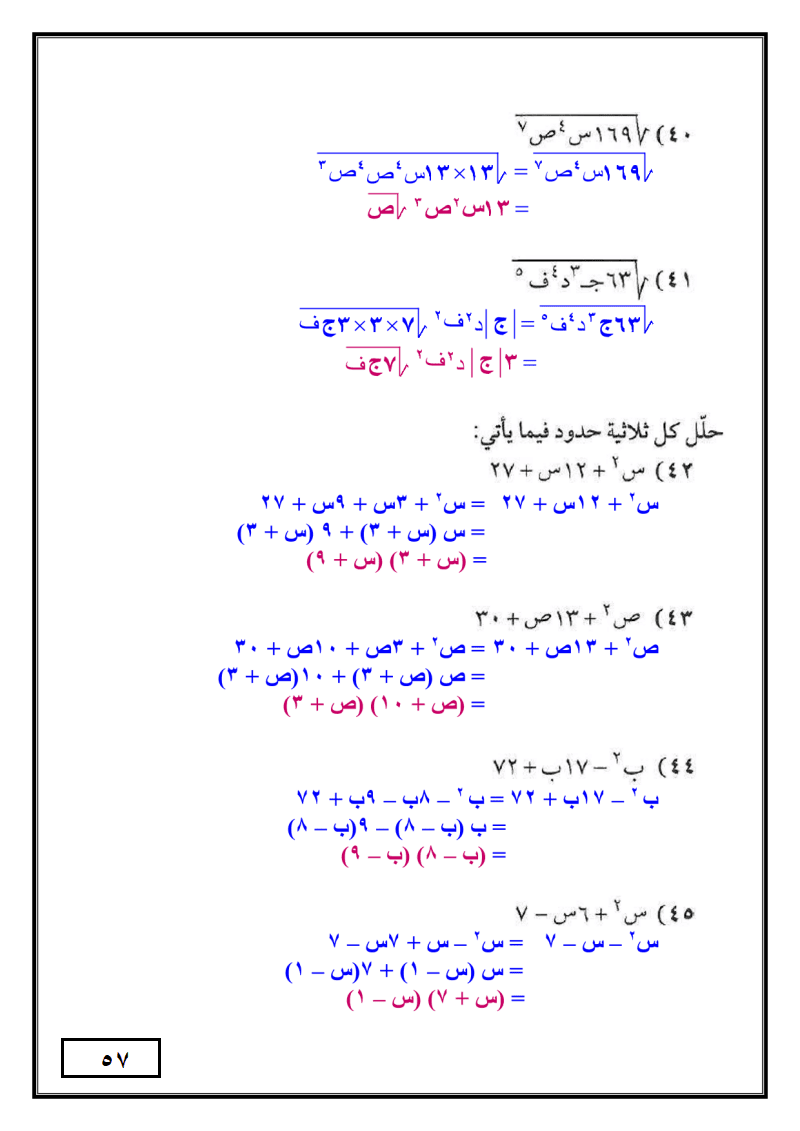 ٤٠) √١٦٩س⁴ص⁷
√١٦٩س⁴ص⁷ = √١٣×١٣س⁴ص⁴ص³
= ١٣س²ص³ √ص
٤١) √٦٣جـ³د⁴ف⁵
√٦٣ج³د⁴ف⁵ = |ج| د²ف² √٧×٣×٣ج ف
= ٣|ج| د²ف² √٧ج ف
حلّل كل ثلاثية حدود فيما يأتي:
٤٢) س² + ١٢س + ٢٧
س² + ١٢س + ٢٧ = س² + ٣س + ٩س + ٢٧
= س (س + ٣) + ٩ (س + ٣)
= (س + ٣) (س + ٩)
٤٣) ص² + ١٣ص + ٣٠
ص² + ١٣ص + ٣٠ = ص² + ٣ص + ١٠ص + ٣٠
= ص (ص + ٣) + ١٠(ص + ٣)
= (ص + ١٠) (ص + ٣)
٤٤) ب² – ١٧ب + ٧٢
ب² – ١٧ب + ٧٢ = ب² – ٨ب – ٩ب + ٧٢
= ب (ب – ٨) – ٩(ب – ٨)
= (ب – ٨) (ب – ٩)
٤٥) س² + ٦س – ٧
س² – س – ٧ = س² – س + ٧س – ٧
= س (س – ١) + ٧(س – ١)
= (س + ٧) (س – ١)
٥٧